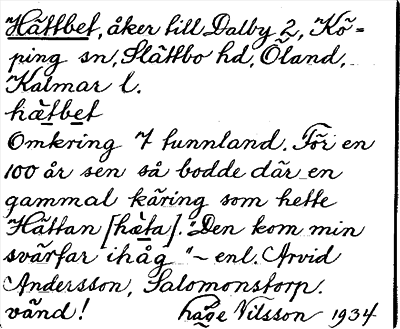 Hättbet, åker till Dalby 2, Kö-
ping sn, Slättbo hd, Öland,
Kalmar l.
hä̀tbet
Omkring 7 tunnland. För en
100 år sen så bodde där en
gammal käring som hette
Hättan [hä̀ta]. "Den kom min
svärfar ihåg" – enl. Arvid
Andersson, Salomonstorp.
vänd! Nilsson 1934